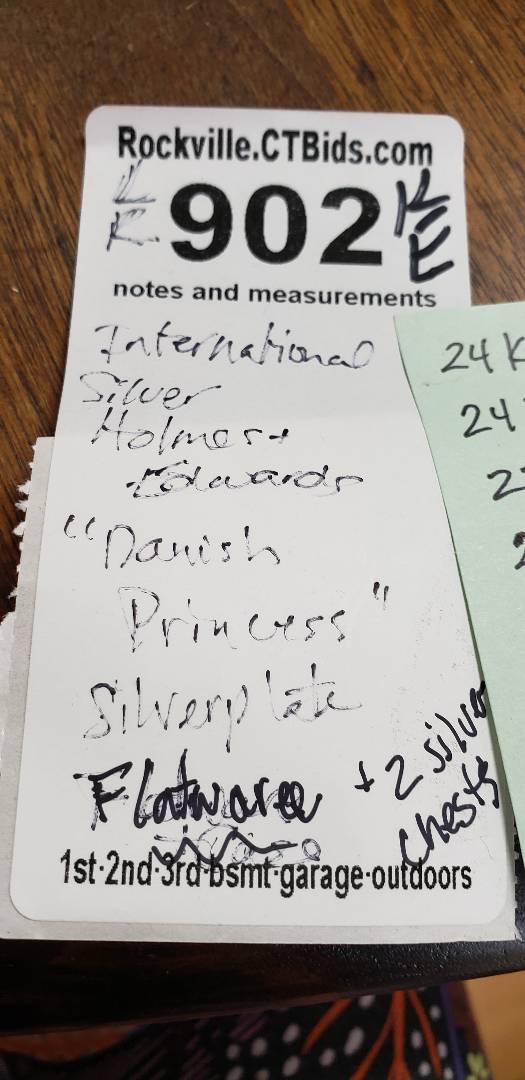 Rockville.CTBids.com
902
K
E
notes and measurements
International
Silver
Holmes +
Edwards
"Danish
Princess"
Silverplate
Flatware + 2 silver
chests
1st·2nd·3rd·bsmt·garage·outdoors
24 K
24
2
2